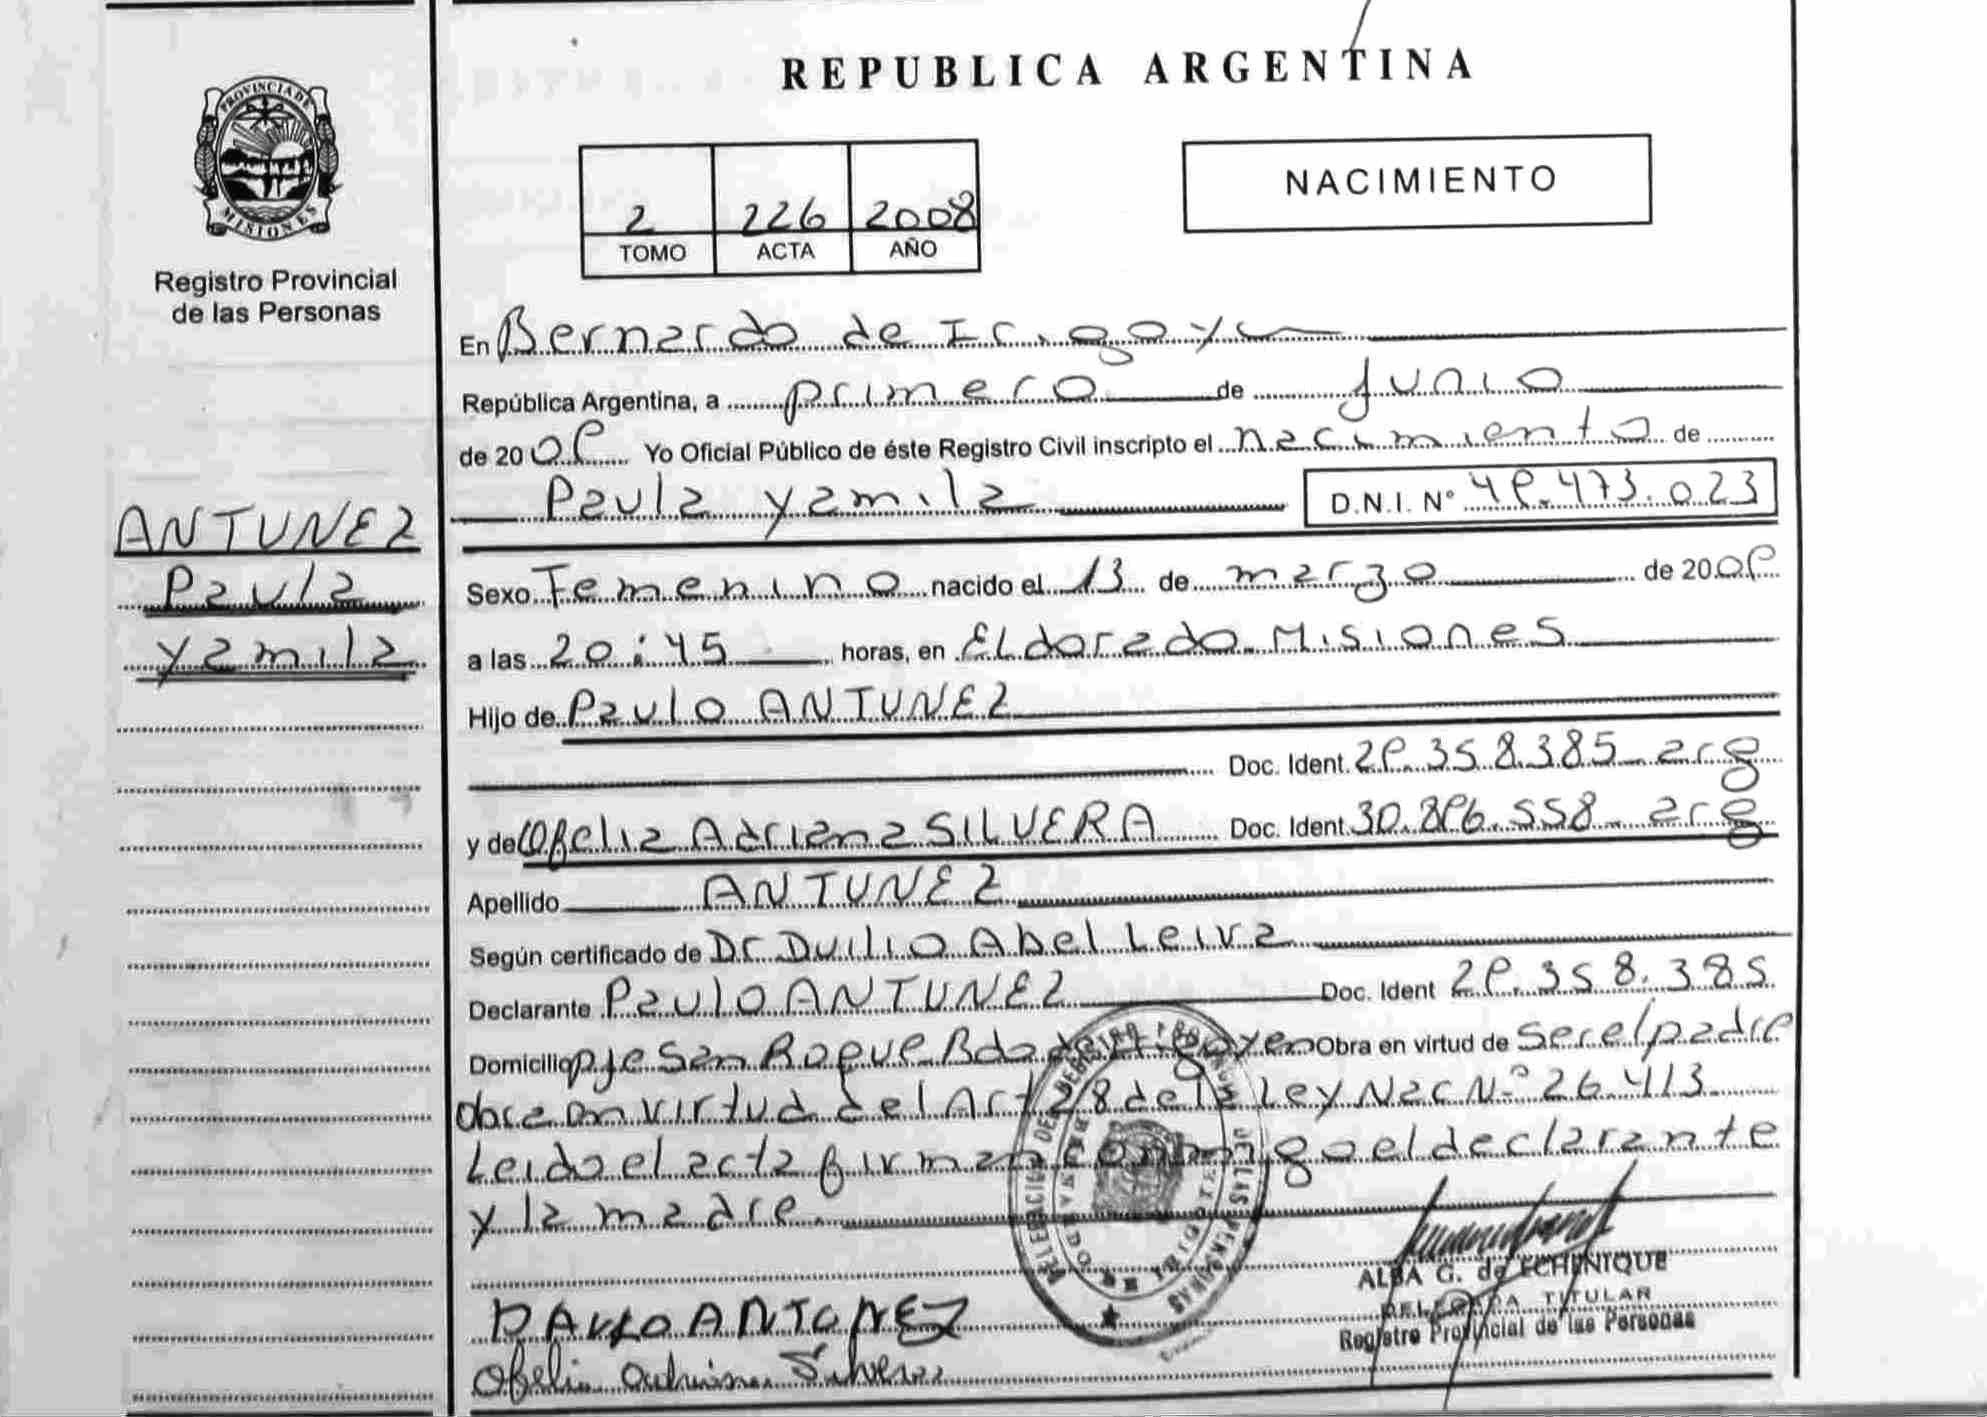 PROVINCIA DE
MISIONES
Registro Provincial
de las Personas
ANTUNEZ
Paula
Yamila
REPUBLICA ARGENTINA
2 226 2008
TOMO ACTA AÑO
NACIMIENTO
En Bernardo de Irigoyen
República Argentina, a primero de Junio
de 2009 Yo Oficial Público de éste Registro Civil inscripto el nacimiento de
Paula Yamila D.N.I. Nº 49.473.023
Sexo Femenino nacido el 13 de marzo de 2009
a las 20:45 horas, en Eldorado Misiones
Hijo de Paulo ANTUNEZ
Doc. Ident. 29.358.385 arg
y de Ofelia Adriana SILVERA Doc. Ident. 30.896.558 arg
Apellido ANTUNEZ
Según certificado de Dr Duilio Abel Leiva
Declarante Paulo ANTUNEZ Doc. Ident 29.358.385
Domicilio pje San Roque Bdo de Irigoyen Obra en virtud de ser el padre
obra en virtud del Art 28 de la Ley Nac Nº 26.413
Leido el acta firman conmigo el declarante
y la madre.
PAULO ANTUNEZ
Ofelia Adriana Silvera
ALBA G. de ECHENIQUE
DELEGADA TITULAR
Registro Provincial de las Personas